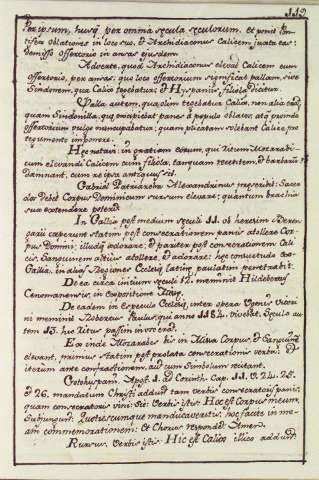 112
Per ipsum, husq. per omnia sæcula sæculorum, et ponit Pon-
tifex oblationes in loco suo, et Archidiaconus Calicem juxta eas:
demisso offertorio in ansas ejusdem.
Advocate, quod Archidiaconus elevat Calicem cum
offertorio, per anses: quo loco offertorium significat pallam, sive
Sindonem, qua Calix tegebatur; et Hispanis, filiola dicitur.
Palla autem, qua olim tegebatur Calix, non alia erat,
quam Sindonilla, quæ excipiebat panes à populo oblatos, atq. proinde
offertorium vulgo nuncupabatur; quam plicatam solebant Calici, pro
tegumento imponere.
Hæc notavi: in gratiam eorum, qui Ritum Mozarabi-
cum elevandi Calicem cum filiola, tanquam recentem, et barbarum
damnant, cum re ipsa antiquus sit.
Gabriel Patriarcha Alexandrinus præscribit: Sacer-
dos debet Corpus Dominicum sursum elevare: quantum brachia
sua extendere poterit.
In Gallia post medium sæculi 11. ob hæresim Beren-
garii cæperunt statim post consecrationem panis atollere Cor-
pus Domini; illudq. adorare; et pariter post consecrationem Cali-
cis, Sanguinem altius atollere, et adorare: hæc consuetudo ex
Gallia, in alias Regiones Ecclesiæ Latinæ paulatim penetrabit.
De ea circa initium sæculi 12. meminit Hildebertus
Cenomanensis, in expositione Missæ.
De eadem in Speculo Ecclesiæ, inter opera Ugonis Victori
ni meminit Robertus Paulus, qui anno 1184. vivebat. Sæculo au
tem 13. hic Ritus passim invocerad.
Ex inde Mozarabes bis in Missa Corpus, et Sanguinem
elevant, primus statim post prolata consecrationis verba: et
iterum ante confractionem, aut cum Simbolum recitant.
Gothus pam. Apost. 1. ad Corinth. Cap. 11. v. 24. 25.
et 26. mandatum Christi addunt tam verbis consecrationis panis,
quam consecrationis vini: Sic: Verbis istis Hoc est Corpus meum,
subjungunt: Quotiescumque manducaveritis: hoc facite in me-
am commemorationem: et Chorus respondet Amen.
Rursus, verbis istis Hic est Calix illico addunt